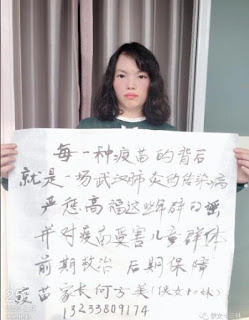 每一种疫苗的背后
就是一场武汉肺炎的传染病
严惩高福这些群
并对疫苗受害儿童群体
前期救治 后期保障
疫苗家长何方美
13233809174